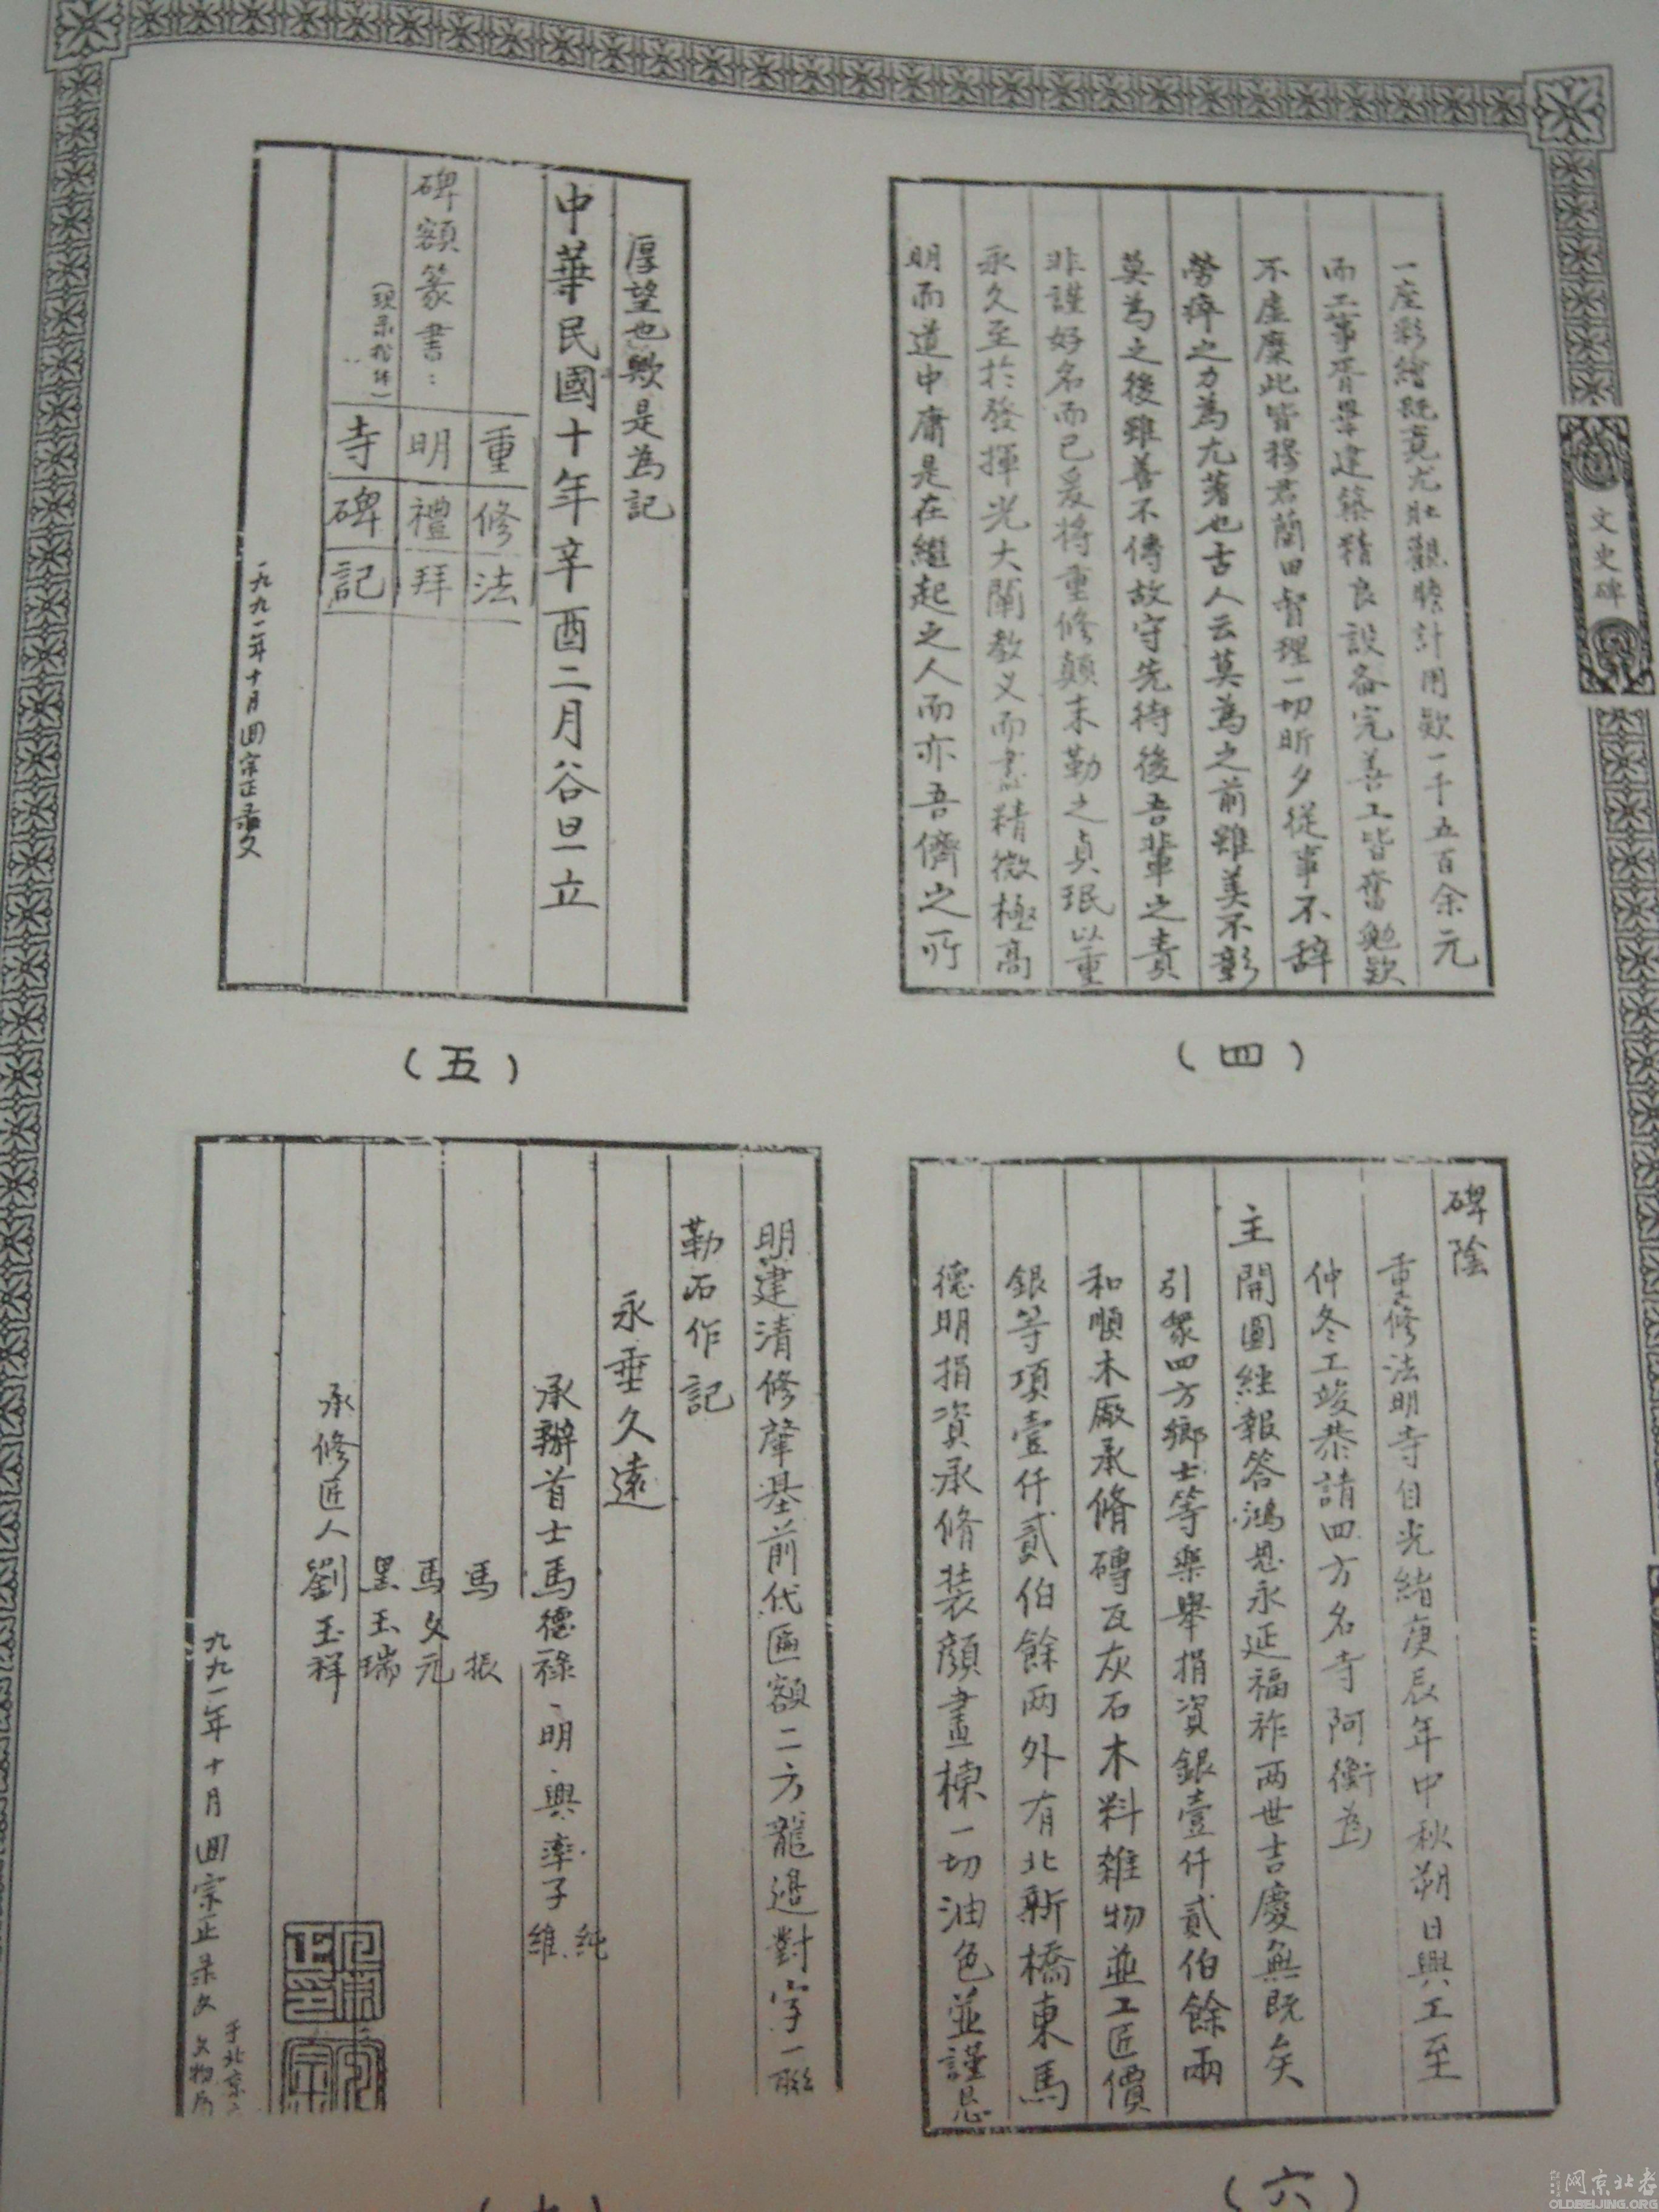 文史碑
一座彩繪既竟尤壯觀瞻計用欵一千五百余元
而工事胥畢建築精良設备完善工皆奮勉欵
不虛糜此皆穆君蘭田督理一切昕夕從事不辞
勞瘁之力為尤著也古人云莫為之前雖美不彰
莫為之後雖善不傳故守先待後吾輩之責
非謹好名而已爰将重修顛末勒之貞珉以垂
永久至於發揮光大闡教义而盡精微極高
明而道中庸是在繼起之人而亦吾儕之所
(四)
厚望也歟是為記
中華民國十年辛酉二月谷旦立
碑額篆書:
(現录楷体)
重修法
明禮拜
寺碑記
一九九一年十月回宗正录文
(五)
碑陰
重修法明寺自光緒庚辰年中秋朔日興工至
仲冬工竣恭請四方名寺阿衡為
主開圓經報答鴻恩永延福祚两世吉慶無既矣
引眾四方鄉士等樂舉捐資銀壹仟貳伯餘兩
和順木廠承脩磚瓦灰石木料雜物並工匠價
銀等項壹仟貳伯餘两外有北新橋東馬
德明捐資承脩装顏畫棟一切油色並謹忌
(六)
明建清修肇基前代匾額二方龍邊對字一聯
勒石作記
永垂久遠
承辦首士馬德祿、明、興率子純
維
馬振
馬文元
黑玉瑞
承修匠人劉玉祥
九九一年十月回宗正录文
于北京
文物局
老北京网
OLDBEIJING.ORG